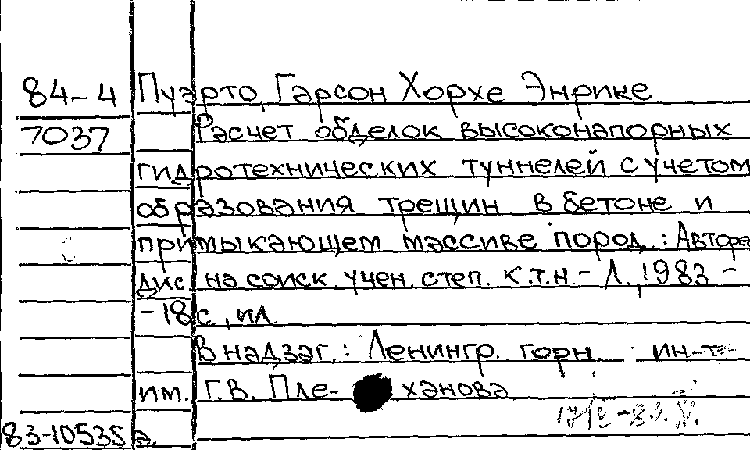 84-4 Пуэрто Гарсон Хорхе Энрике
7037 Расчет обделок высоконапорных
гидротехнических туннелей с учетом
образования трещин в бетоне и
примыкающем массиве пород.: Авторе
дис. на соиск. учен. степ. к.т.н. - Л., 1983 -
-18 с., ил.
В надзаг.: Ленингр. горн. ин-т
им. Г.В. Пле- ханова
83-10535а